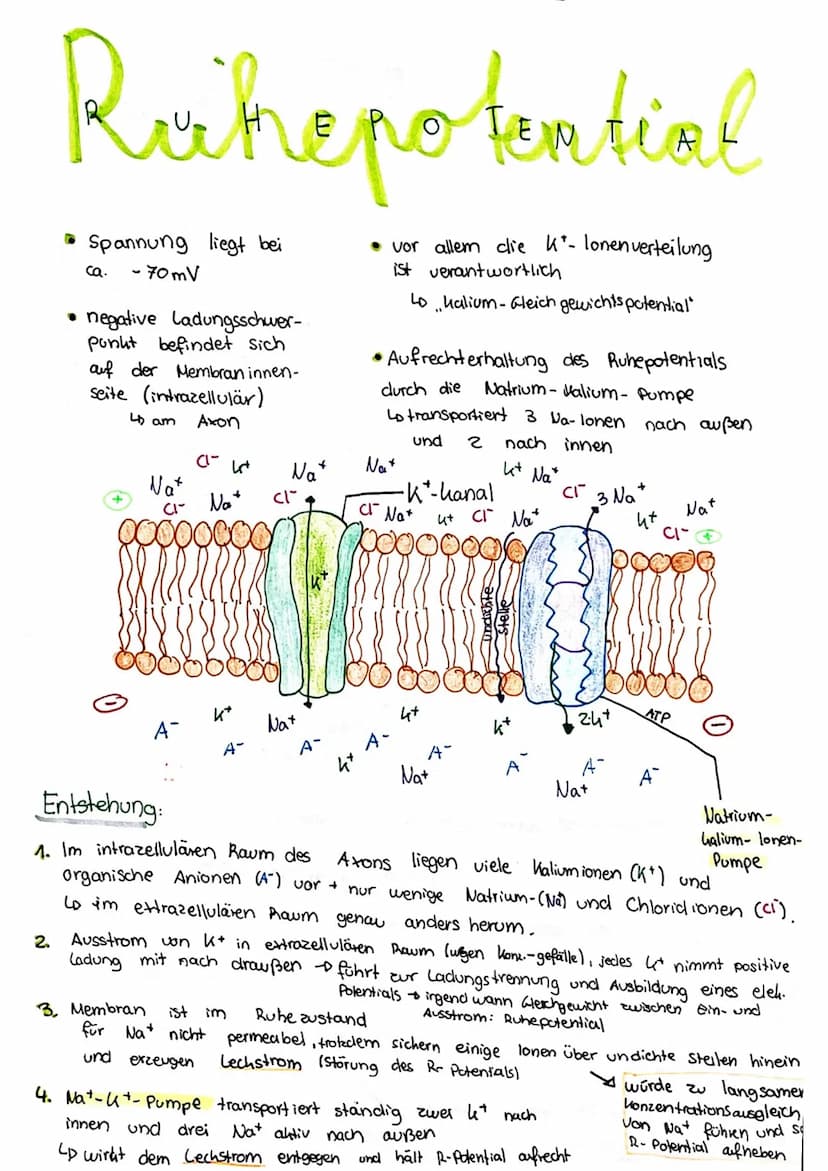 Ruhepotential
RUHEPOTENTIAL
• Spannung liegt bei
ca. -70mV
• negative Ladungsschwer-
punkt befindet sich
auf der Membraninnen-
seite (intrazellulär)
↳ am Axon
• vor allem die K⁺-Ionenverteilung
ist verantwortlich
↳ „Kalium-Gleichgewichtspotential"
• Aufrechterhaltung des Ruhepotentials
durch die Natrium-Kalium-Pumpe
↳ transportiert 3 Na-Ionen nach außen
und 2 nach innen
Cl⁻ K⁺ Na⁺ Na⁺ K⁺ Na⁺
Na⁺ Cl⁻ Na⁺ Cl⁻ K⁺-Kanal Cl⁻ 3 Na⁺
+ Cl⁻ Na⁺ K⁺ Cl⁻ Na⁺ K⁺ Cl⁻ Na⁺ +
K⁺
undichte
Stelle
- K⁺ Na⁺ K⁺ K⁺ 2K⁺ ATP -
A⁻ A⁻ A⁻ K⁺ A⁻ Na⁺ A⁻ A⁻ Na⁺ A⁻ A⁻
Natrium-
Kalium-Ionen-
Pumpe
Entstehung:
1. Im intrazellulären Raum des Axons liegen viele Kaliumionen (K⁺) und
organische Anionen (A⁻) vor + nur wenige Natrium-(Na⁺) und Chloridionen (Cl⁻).
↳ im extrazellulären Raum genau anders herum.
2. Ausstrom von K⁺ in extrazellulären Raum (wegen Konz.-gefälle), jedes K⁺ nimmt positive
Ladung mit nach draußen → führt zur Ladungstrennung und Ausbildung eines elek.
Potentials → irgendwann Gleichgewicht zwischen Ein- und
Ausstrom: Ruhepotential
3. Membran ist im Ruhezustand
für Na⁺ nicht permeabel, trotzdem sickern einige Ionen über undichte Stellen hinein
und erzeugen Leckstrom (Störung des R-Potentials)
würde zu langsamer
Konzentrationsausgleich
von Na⁺ führen und so
R-Potential aufheben
4. Na⁺-K⁺-Pumpe transportiert ständig zwei K⁺ nach
innen und drei Na⁺ aktiv nach außen
↳ wirkt dem Leckstrom entgegen und hält R-Potential aufrecht